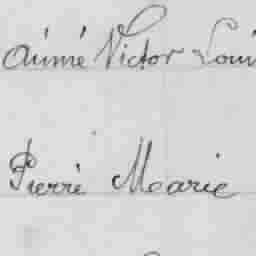 Aimé Victor Loui
Pierre Marie